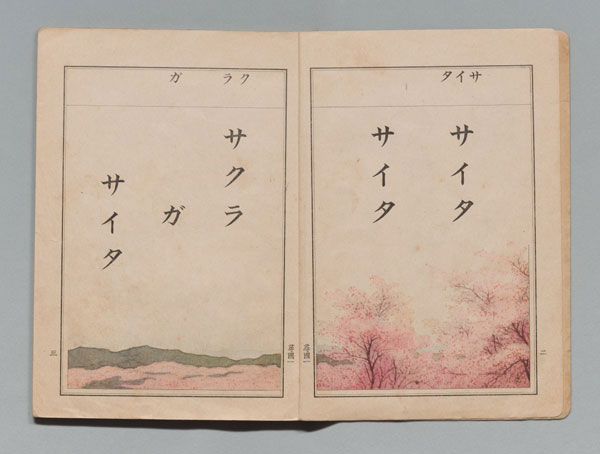 サイタ
サイタ
サイタ
二
尋國一
クラ ガ
サクラ
ガ
サイタ
三
尋國一